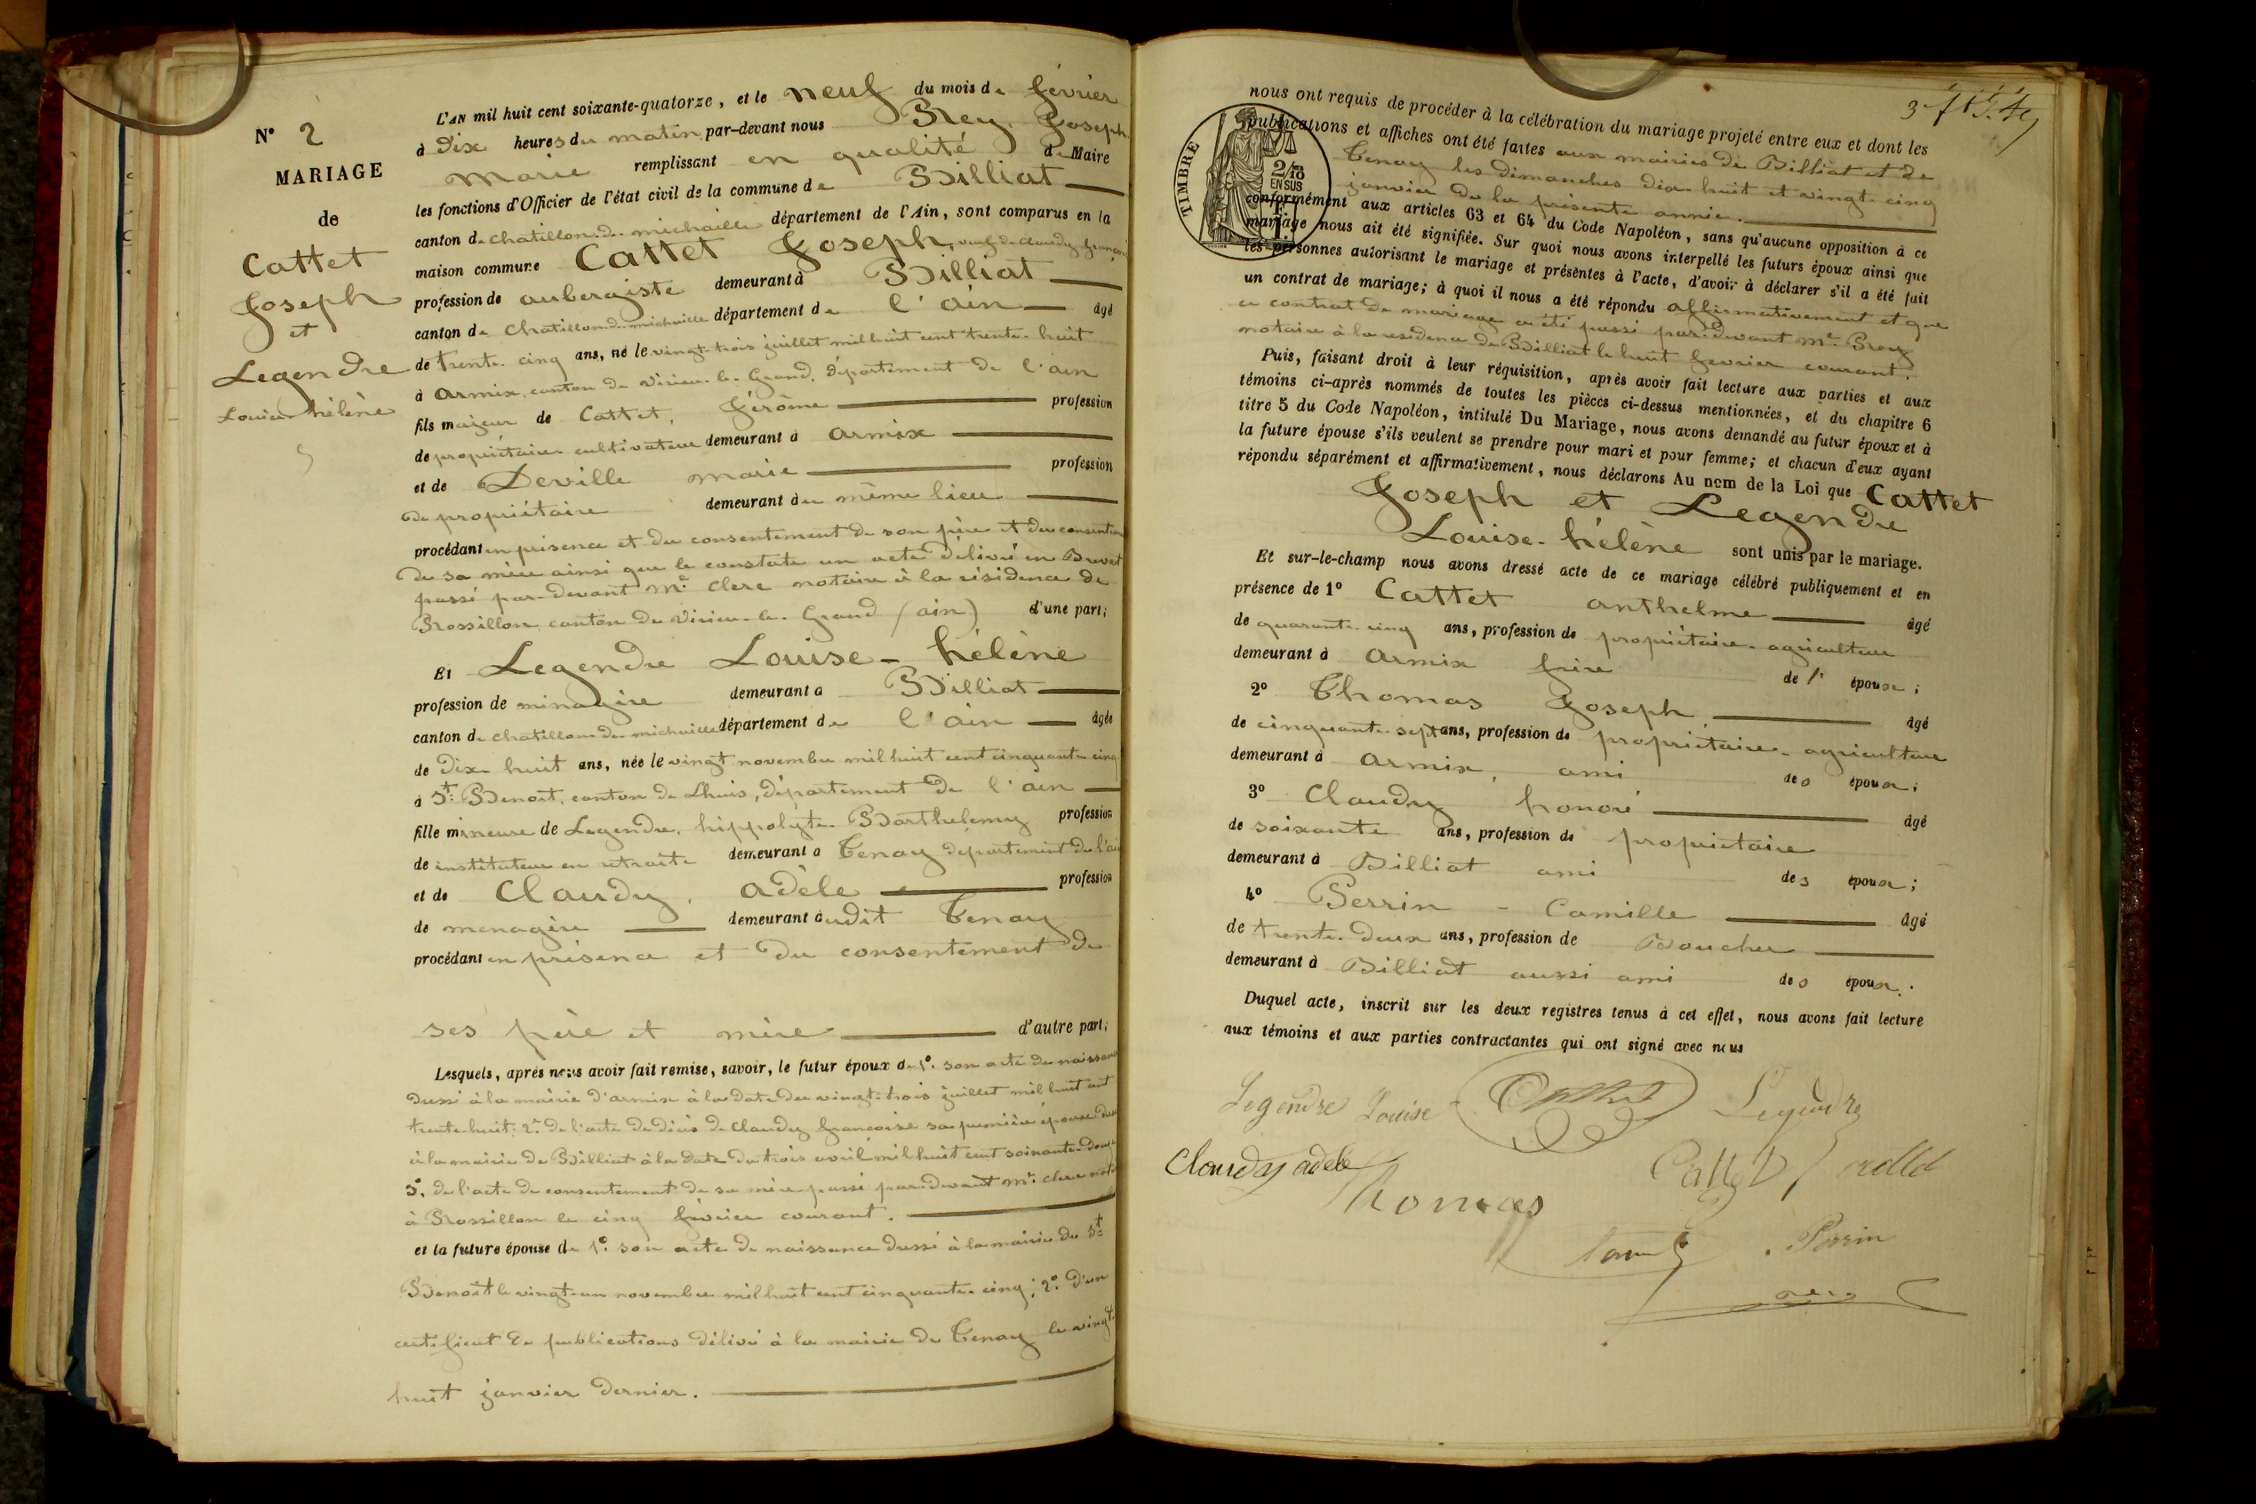 N° 2
MARIAGE
de
Cattet
Joseph
et
Legendre
Louise hélène
L'AN mil huit cent soixante-quatorze, et le neuf du mois de février
à dix heures du matin par-devant nous Brey Joseph
Marie remplissant en qualité de Maire
les fonctions d'Officier de l'état civil de la commune de Billiat
canton de chatillon-de-michaille département de l'Ain, sont comparus en la
maison commune Cattet Joseph, veuf de Claudy françoise
profession de aubergiste demeurant à Billiat
canton de Chatillon-de-michaille département de l'ain âgé
de trente-cinq ans, né le vingt-trois juillet mil huit cent trente-huit
à armix, canton de Virieu-le-Grand, département de l'ain
fils majeur de Cattet, Jérôme profession
de propriétaire cultivateur demeurant à armix
et de Deville marie profession
de propriétaire demeurant au même lieu
procédant en présence et du consentement de son père et du consentement
de sa mère ainsi que le constate un acte délivré en Brevet
passé par-devant Me clerc notaire à la résidence de
Rossillon canton de Virieu-le-Grand (ain) d'une part;
Et Legendre Louise-hélène
profession de ménagère demeurant à Billiat
canton de chatillon-de-michaille département de l'ain âgée
de dix-huit ans, née le vingt novembre mil huit cent cinquante cinq
à St Benoit, canton de Lhuis, département de l'ain
fille mineure de Legendre, hippolyte Barthelemy profession
de instituteur en retraite demeurant à Tenay département de l'ain
et de Claudy, adèle profession
de menagère demeurant audit Tenay
procédant en présence et du consentement de
ses père et mère d'autre part;
Lesquels, après nous avoir fait remise, savoir, le futur époux de 1° son acte de naissance
dressé à la mairie d'armix à la date du vingt-trois juillet mil huit cent
trente-huit; 2° de l'acte de décès de Claudy françoise sa première épouse dressé
à la mairie de Billiat à la date du trois avril mil huit cent soixante-douze
3° de l'acte de consentement de sa mère passé par-devant Me clerc notaire
à Rossillon le cinq février courant.
et la future épouse de 1° son acte de naissance dressé à la mairie de St
Benoit le vingt-un novembre mil huit cent cinquante-cinq; 2° d'un
certificat de publications délivré à la mairie de Tenay le vingt
huit janvier dernier.
3
TIMBRE
2/10
EN SUS
1 F.
nous ont requis de procéder à la célébration du mariage projeté entre eux et dont les
publications et affiches ont été faites aux mairies de Billiat et de
Tenay les dimanches dix-huit et vingt-cinq
janvier de la présente année.
conformément aux articles 63 et 64 du Code Napoléon, sans qu'aucune opposition à ce
mariage nous ait été signifiée. Sur quoi nous avons interpellé les futurs époux ainsi que
les personnes autorisant le mariage et présentes à l'acte, d'avoir à déclarer s'il a été fait
un contrat de mariage; à quoi il nous a été répondu affirmativement et que
ce contrat de mariage a été passé par-devant Me Brey
notaire à la résidence de Billiat le huit fevrier courant.
Puis, faisant droit à leur réquisition, après avoir fait lecture aux parties et aux
témoins ci-après nommés de toutes les pièces ci-dessus mentionnées, et du chapitre 6
titre 5 du Code Napoléon, intitulé Du Mariage, nous avons demandé au futur époux et à
la future épouse s'ils veulent se prendre pour mari et pour femme; et chacun d'eux ayant
répondu séparément et affirmativement, nous déclarons Au nom de la Loi que Cattet
Joseph et Legendre
Louise-hélène sont unis par le mariage.
Et sur-le-champ nous avons dressé acte de ce mariage célébré publiquement et en
présence de 1° Cattet anthelme âgé
de quarante-cinq ans, profession de propriétaire-agriculteur
demeurant à armix frère de l' époux;
2° Thomas Joseph âgé
de cinquante-sept ans, profession de propriétaire-agriculteur
demeurant à armix, ami des époux;
3° Claudy honoré âgé
de soixante ans, profession de propriétaire
demeurant à Billiat ami des époux;
4° Perrin - Camille âgé
de trente-deux ans, profession de Boucher
demeurant à Billiat aussi ami des époux.
Duquel acte, inscrit sur les deux registres tenus à cet effet, nous avons fait lecture
aux témoins et aux parties contractantes qui ont signé avec nous
Legendre Louise Cattet Legendre
Claudy adele Cattet
Thomas
Perrin